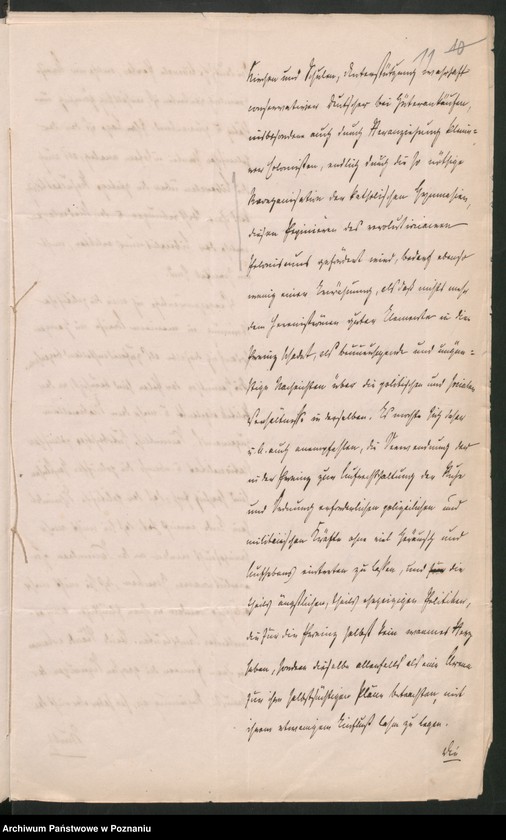 11 40
Kirchen und Schulen, Unterstützung wahrhaft
conservativer Deutscher bei Güterankäufen,
insbesondere auch durch Heranziehung klein-
rer Colonisten, endlich durch die so nöthige
Reorganisation der katholischen Gymnasien,
diesen des revolutionairen
Polonismus gefördert wird, bedarf ebenso
wenig einer Erwähnung, als daß nichts mehr
dem Hereinströmen guter Elemente in die
Provinz schadet, als beunruhigende und ungün-
stige Nachrichten über die politischen und socialen
Verhältnisse in derselben. Es möchte sich daher
u. E. auch empfehlen, die Verwendung der
in der Provinz zur Aufrechthaltung der Ruhe
und Ordnung erforderlichen polizeilichen und
militairischen Kräfte ohne viel Geräusch und
Aufhebens eintreten zu lassen, und die
theils ängstlichen, theils ehrgeizigen Politiker,
die für die Provinz selbst kein warmes Herz
haben, sondern dieselbe allenfalls als eine Arena
für ihre selbstsüchtigen Pläne betrachten, mit
ihrem etwanigen Einfluß lahm zu legen.
Die
Archiwum Państwowe w Poznaniu